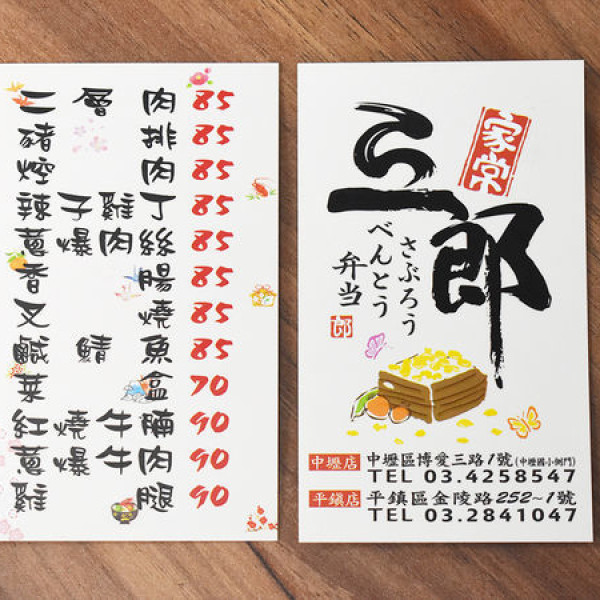 二層肉 85
豬排 85
焢肉 85
辣子雞丁 85
蔥爆肉絲 85
香腸 85
叉燒 85
鹹鯖魚 85
菜盒 70
紅燒牛腩 90
蔥爆牛肉 90
雞腿 90
家常
三郎
さぶろう
べんとう
弁当
郎
中壢店 中壢區博愛三路1號(中壢國小側門)
TEL 03.4258547
平鎮店 平鎮區金陵路252~1號
TEL 03.2841047